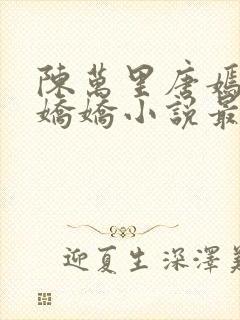 陳萬里唐嫣
嬌嬌小說最
迎夏生深澤美